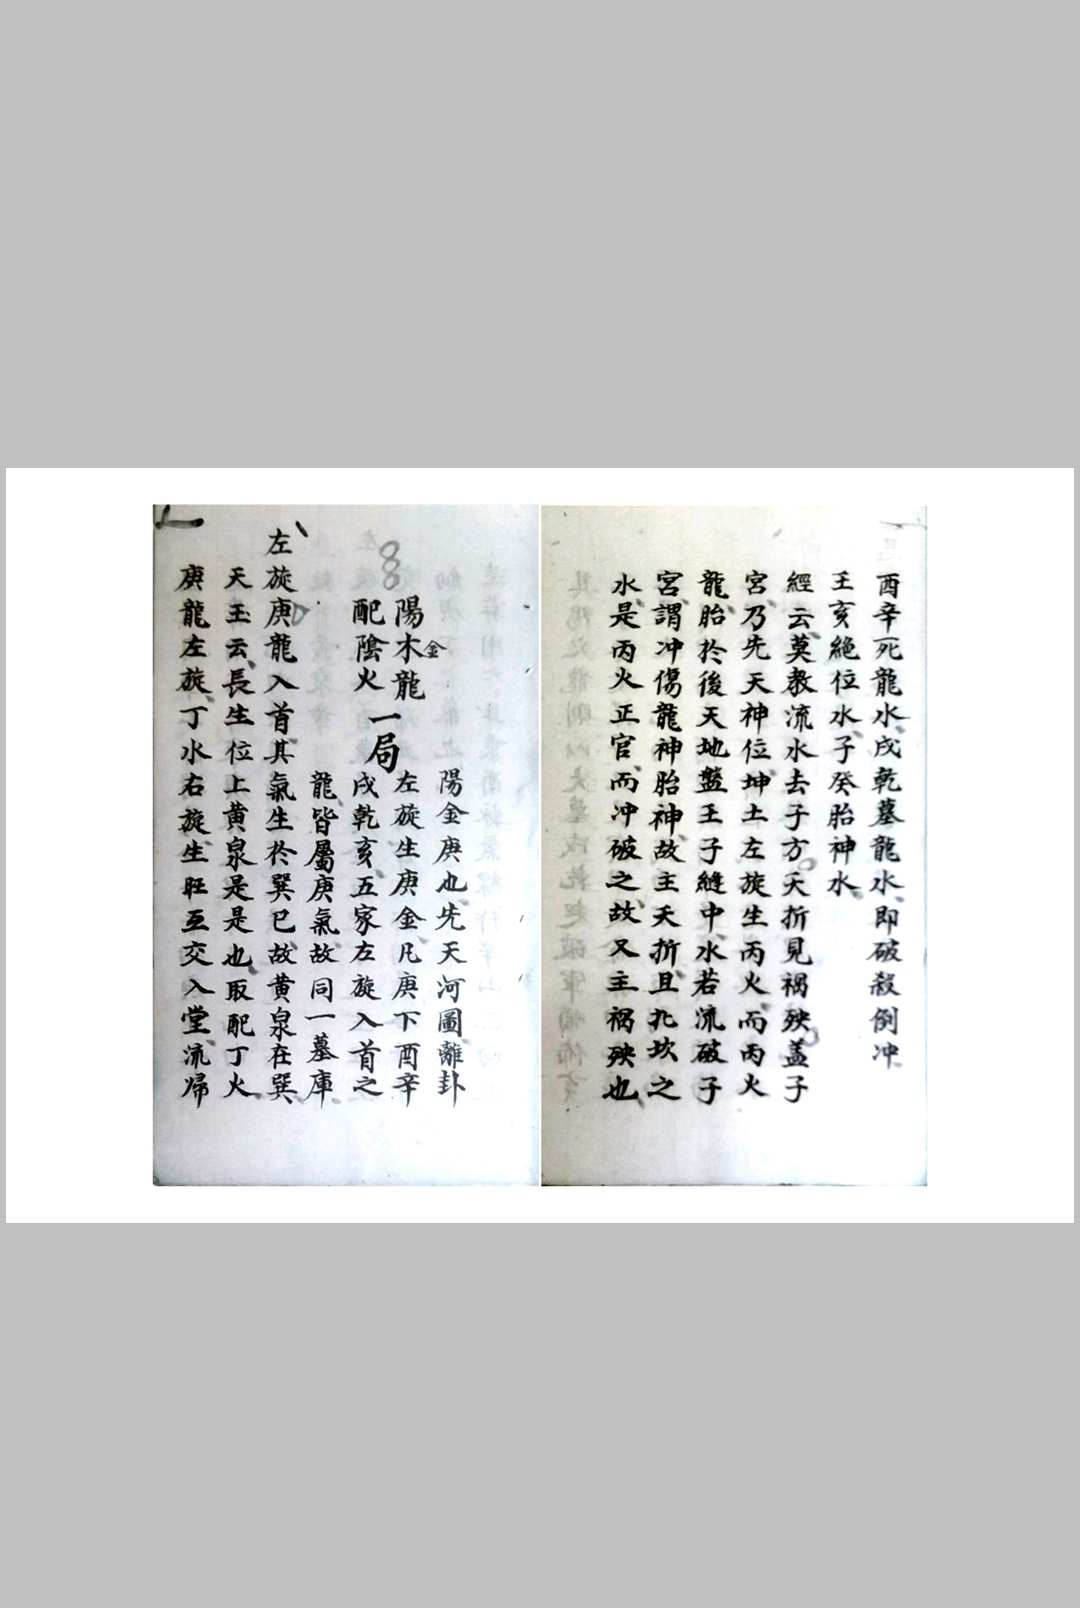 酉辛死龍水戌乾墓龍水即破殺倒冲
王亥絶位水子癸胎神水
經云莫教流水去子方夭折見禍殃盖子
宮乃先天神位坤土左旋生丙火而丙火
龍胎於後天地盤王子縫中水若流破子
宮謂冲傷龍神胎神故主夭折且孔坎之
水是丙火正官而冲破之故又主禍殃也
陽金庚也先天河圖離卦
陽木金龍
左旋生庚金凡庚下酉辛
配陰火
戌乾亥五家左旋入首之
一局
龍皆屬庚氣故同一墓庫
左旋庚龍入首其氣生於巽巳故黄泉在巽
天玉云長生位上黄泉是是也取配丁火
庚龍左旋丁水右旋生旺互交入堂流歸